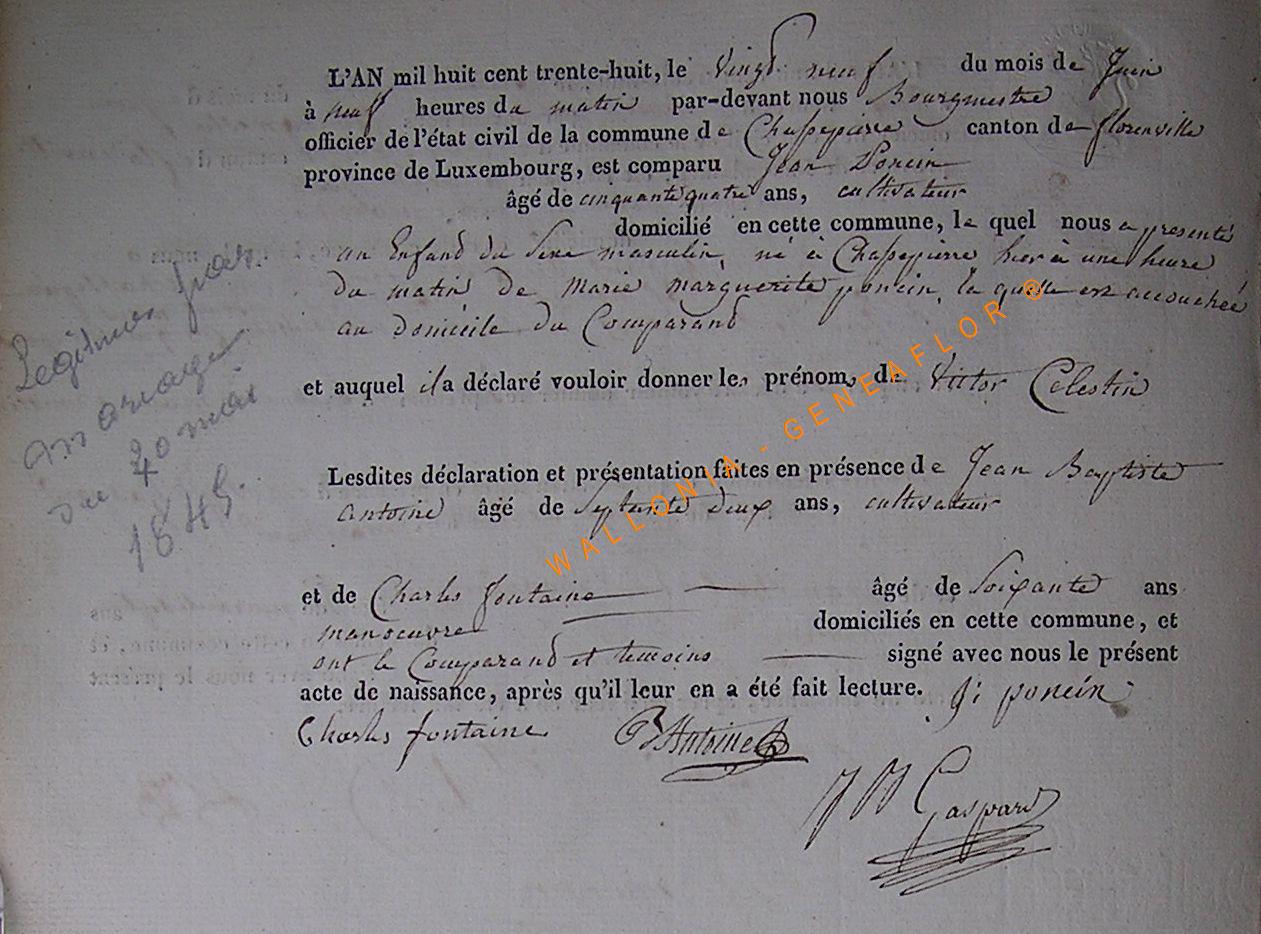 L'AN mil huit cent trente-huit, le vingt neuf du mois de Juin
à neuf heures du matin par-devant nous Bourgmestre
officier de l'état civil de la commune de Chassepierre canton de florenville
province de Luxembourg, est comparu Jean Poncin
âgé de cinquante quatre ans, cultivateur
domicilié en cette commune, le quel nous a presenté
un Enfand du Sexe masculin, né à Chassepierre hier à une heure
du matin de Marie marguerite poncin, la quelle est accouchée
au domicile du Comparand
et auquel il a déclaré vouloir donner les prénoms de Victor Celestin
Lesdites déclaration et présentation faites en présence de Jean Baptiste
antoine âgé de Septante deux ans, cultivateur
et de Charles fontaine âgé de Soixante ans
manoeuvre domiciliés en cette commune, et
ont le Comparand et temoins signé avec nous le présent
acte de naissance, après qu'il leur en a été fait lecture. J. poncin
Charles fontaine B Antoine
J B Gaspard
Legitimé par
mariage
du 20 mai
1845.
WALLONIA - GENEAFLOR ®